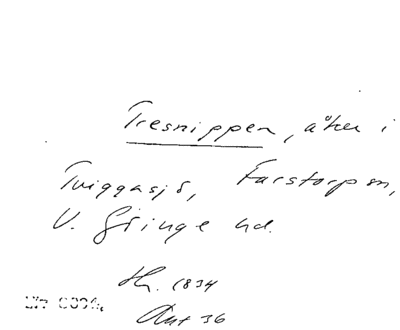 Tresnippen, åker i
Tviggasjö, Farstorp sn,
V. Göinge hd.
Hr. 1834
Akt 36